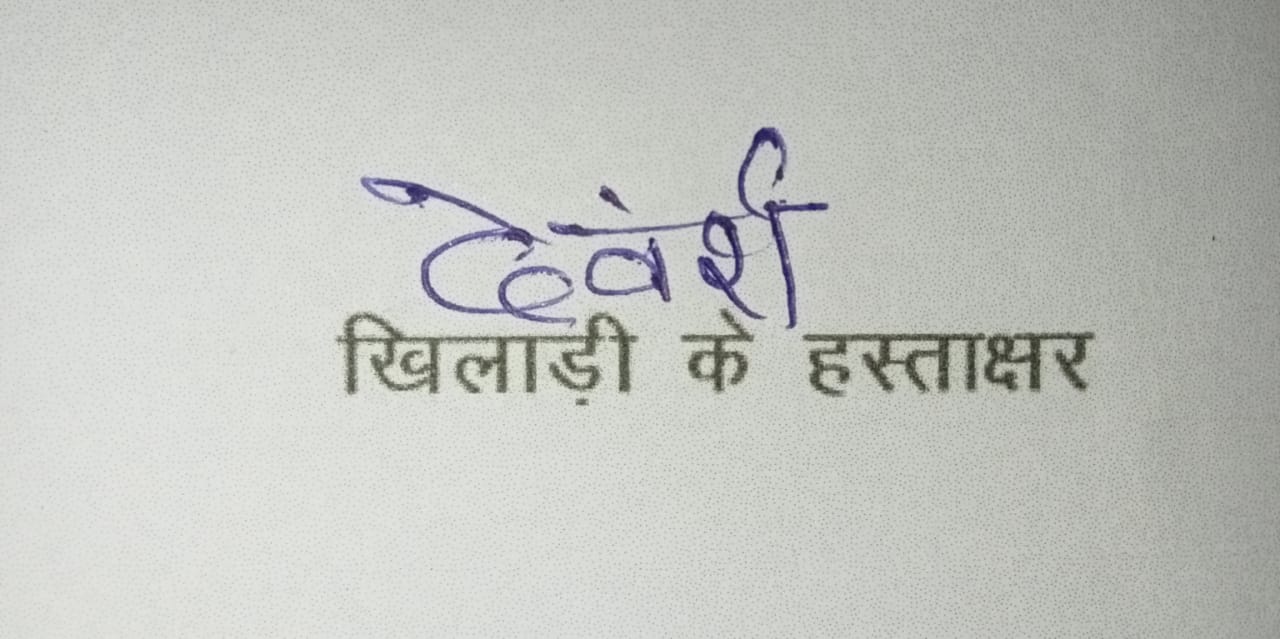 देवंर्श
खिलाड़ी के हस्ताक्षर